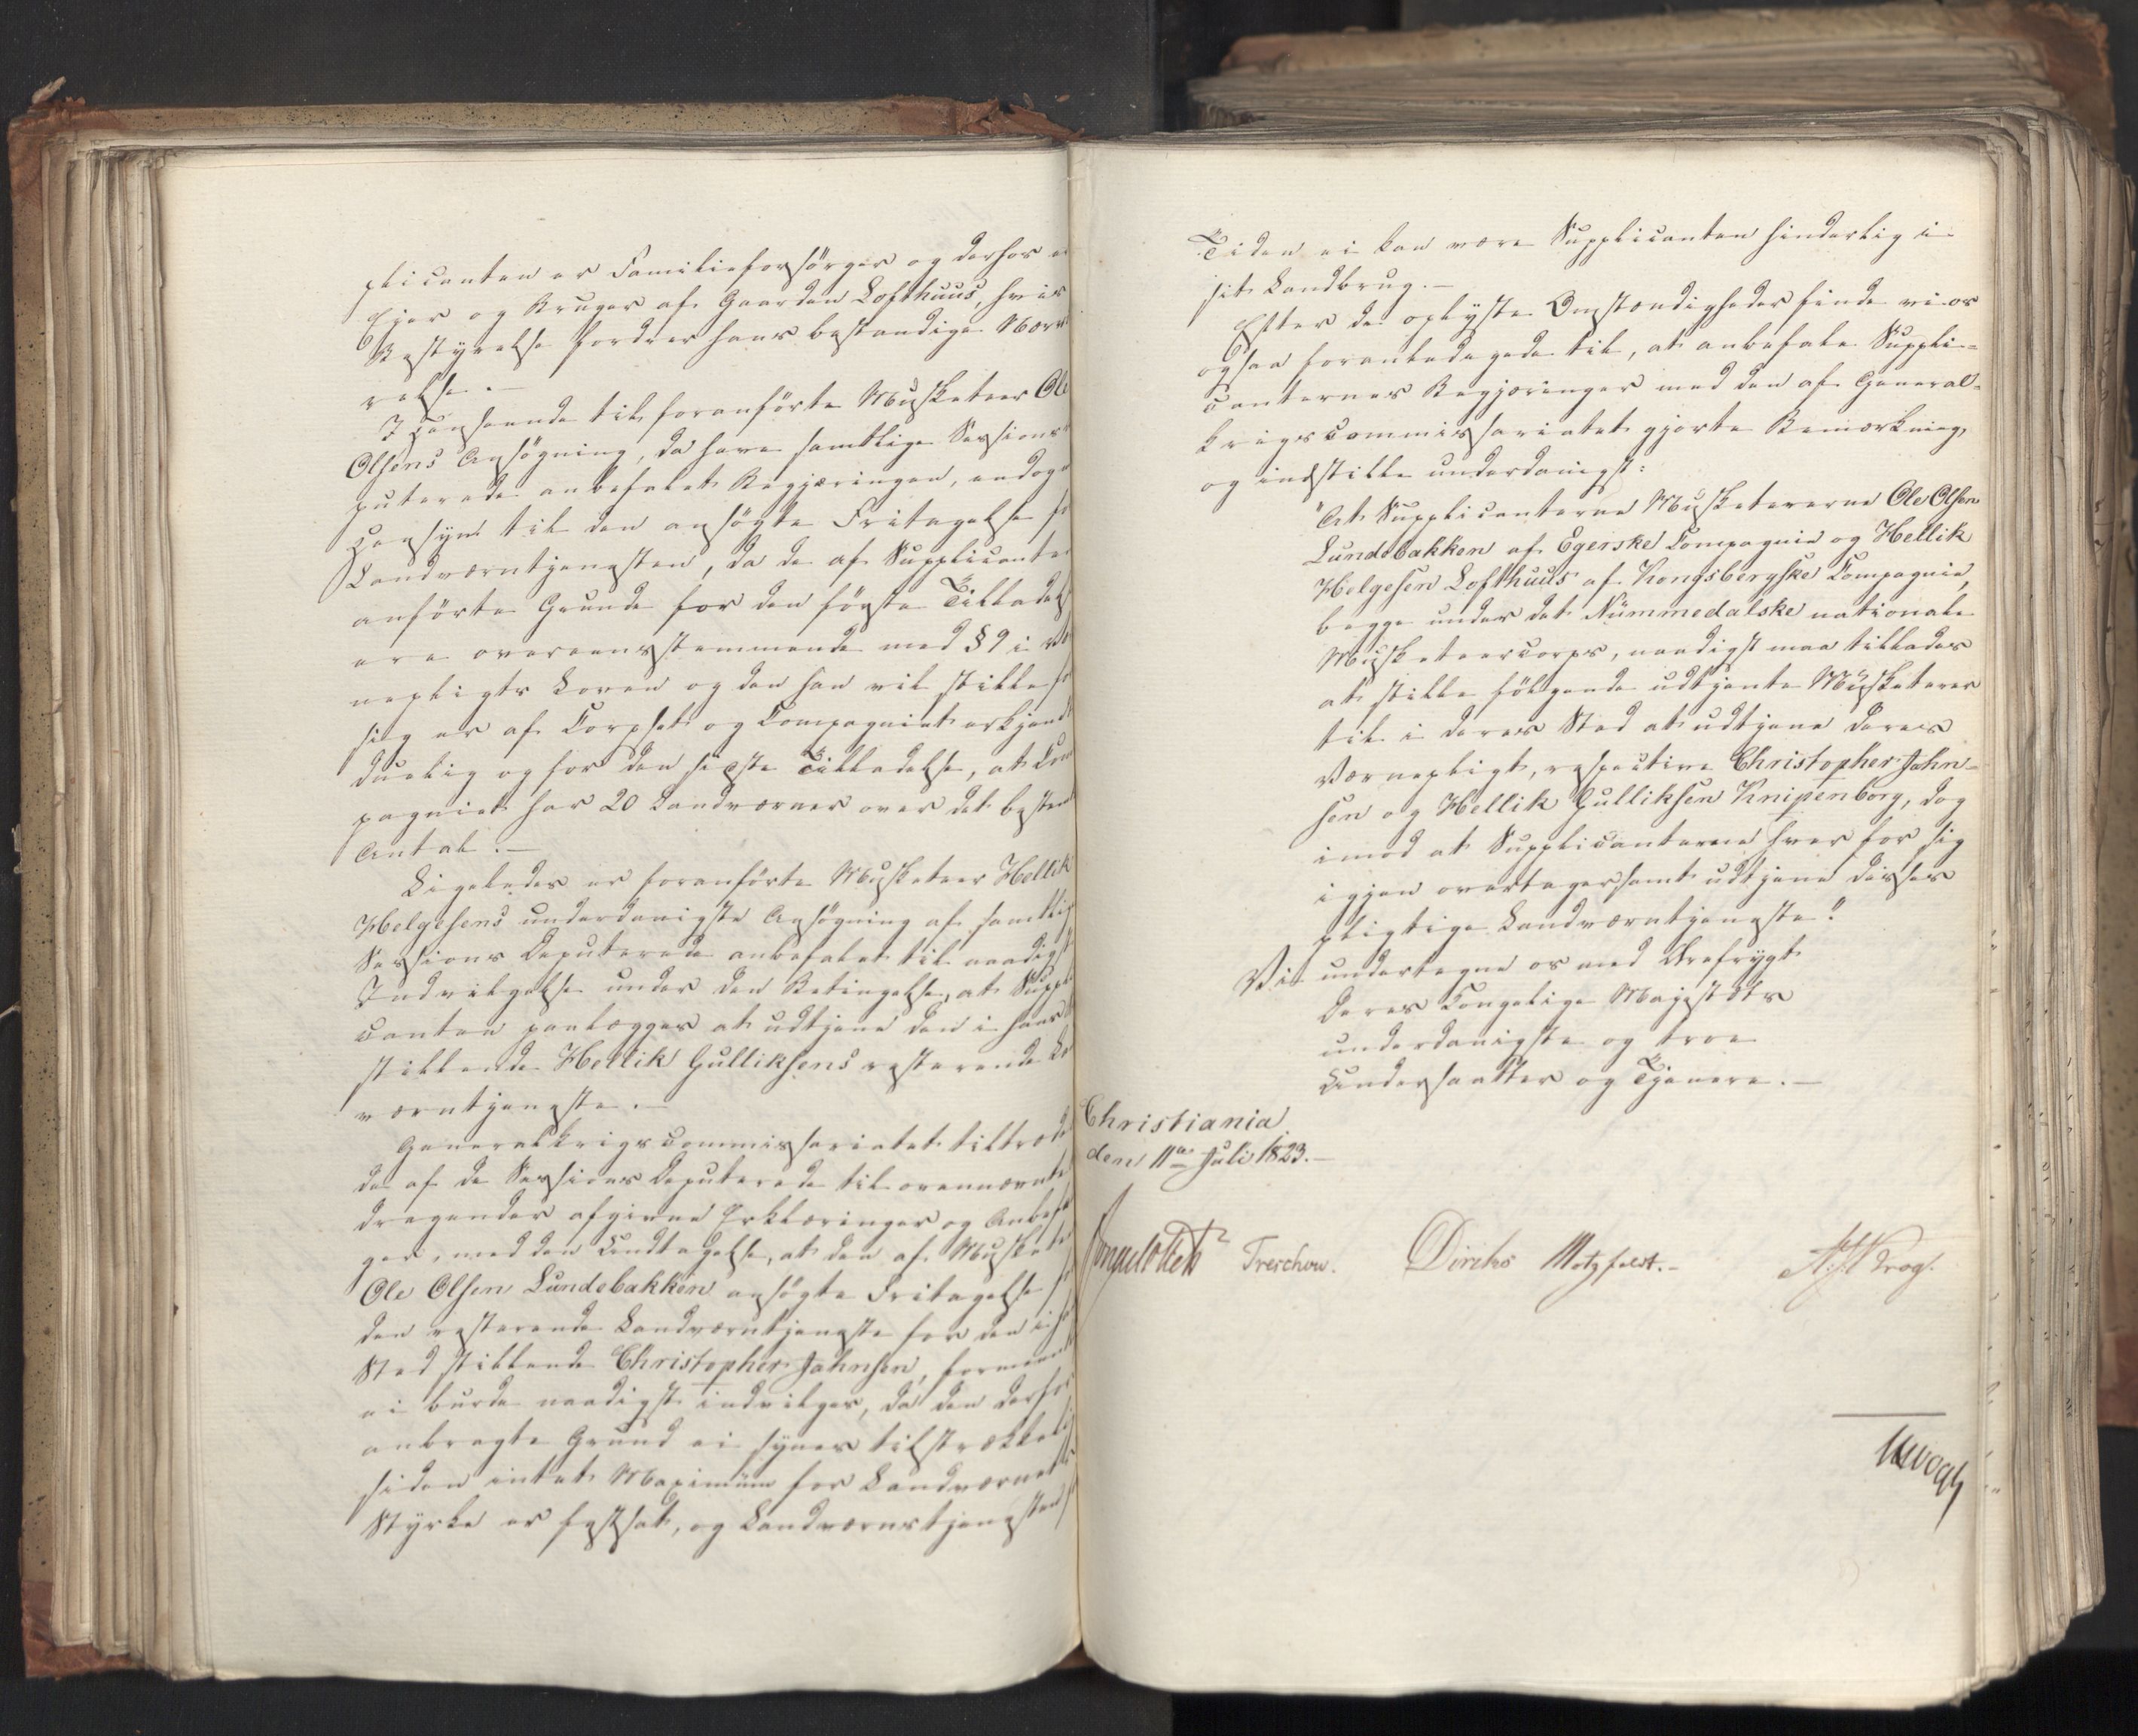 plicanten er Familieforsørger og derhos er
Eier og Bruger af Gaarden Lofthuus, hvis
Bestyrelse fordrer hans bestandige Nærvæ
relse.—
I Henseende til foranførte Musketeer Ole
Olsens Ansøgning, da have samtlige Sessions
puterede anbefalet Begjæringen, endog
Hensyn til den ansøgte Fritagelse fo
Landværntjenesten, da de af Supplicanten
anførte Grunde for den første Tilladelse
ere overeensstemmende med § 9 i Vær
nepligts Loven og den han vil stille fo
sig er af Corpset og Compagniet erkjendt
duelig og for den sidste Tilladelse, at Com
pagniet har 20 Landværner over det bestemte
Antal.—
Ligeledes er foranførte Musketeer Hellik
Helgesens underdanigste Ansøgning af samtlige
Sessions Deputerede anbefalet til naadigst
Indvilgelse under den Betingelse, at Suppli
canten paalægges at udtjene den i hans
stillende Hellik Gulliksens resterende La
værntjeneste.—
Generalkrigscommissariatet tiltræder
de af de Sessions Deputerede til ovennævnte
dragender afgivne Erklæringer og Anbefa
ger, med den Undtagelse, at den af Muskete
Ole Olsen Lundebakken ansøgte Fritagelse fo
den resterende Landværntjeneste for den i h
Sted stillende Christopher Jahnsen, formeent
ei burde naadigst indvilges, da den derfor
anbragte Grund ei synes tilstrækkelig
siden intet Maximum for Landværnets
Styrke er fastsat, og Landværnstjenesten
Tiden ei kan være Supplicanten hinderlig i
sit Landbrug.—
Efter de oplyste Omstændigheder finde vi os
ogsaa foranledigede til, at anbefale Suppli-
canternes Begjæringer med den af General-
krigscommissariatet gjorte Bemærkning,
og indstille underdanigst:
"At Supplicanterne Musketererne Ole Olsen
Lundebakken af Egerske Compagnie og Hellik
Helgesen Lofthuus af Kongsbergske Compagnie,
begge under det Nummedalske nationale
Musketeercorps, naadigst maa tillades
at stille følgende udtjente Musketerer
til i deres Sted at udtjene deres
Værnepligt, respective Christopher Jahn-
sen og Hellik Gulliksen Knipenborg, dog
imod at Supplicanterne hver for sig
igjen overtager samt udtjene disses
pligtige Landværntjeneste."
Vi undertegne os med Ærefrygt
Deres Kongelige Majestæts
underdanigste og troe
Undersaatter og Tjenere.—
Christiania
den 11te Juli 1823.—
Treschow. Diriks Motzfeldt.- Krog.